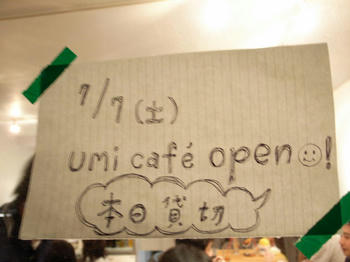 7/7(土)
umi café open☺!
本日貸切